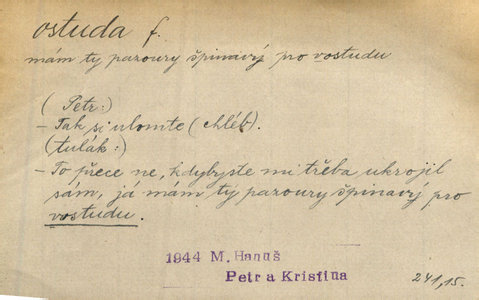 ostuda f.
mám ty pazoury špinavý pro vostudu
(Petr:)
- Tak si ulomte (chléb).
(tulák:)
- To přece ne, kdybyste mi třeba ukrojil
sám, já mám ty pazoury špinavý pro
vostudu.
1944 M. Hanuš
Petr a Kristina
241,15.